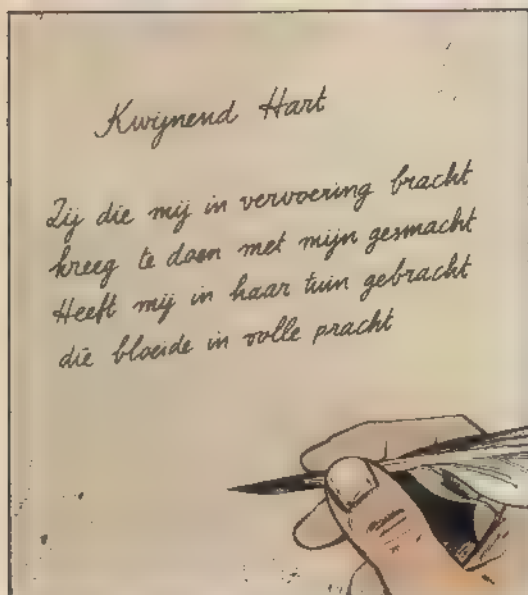 Kwijnend Hart
Zij die mij in vervoering bracht
kreeg te doen met mijn gesmacht
Heeft mij in haar tuin gebracht
die bloeide in volle pracht